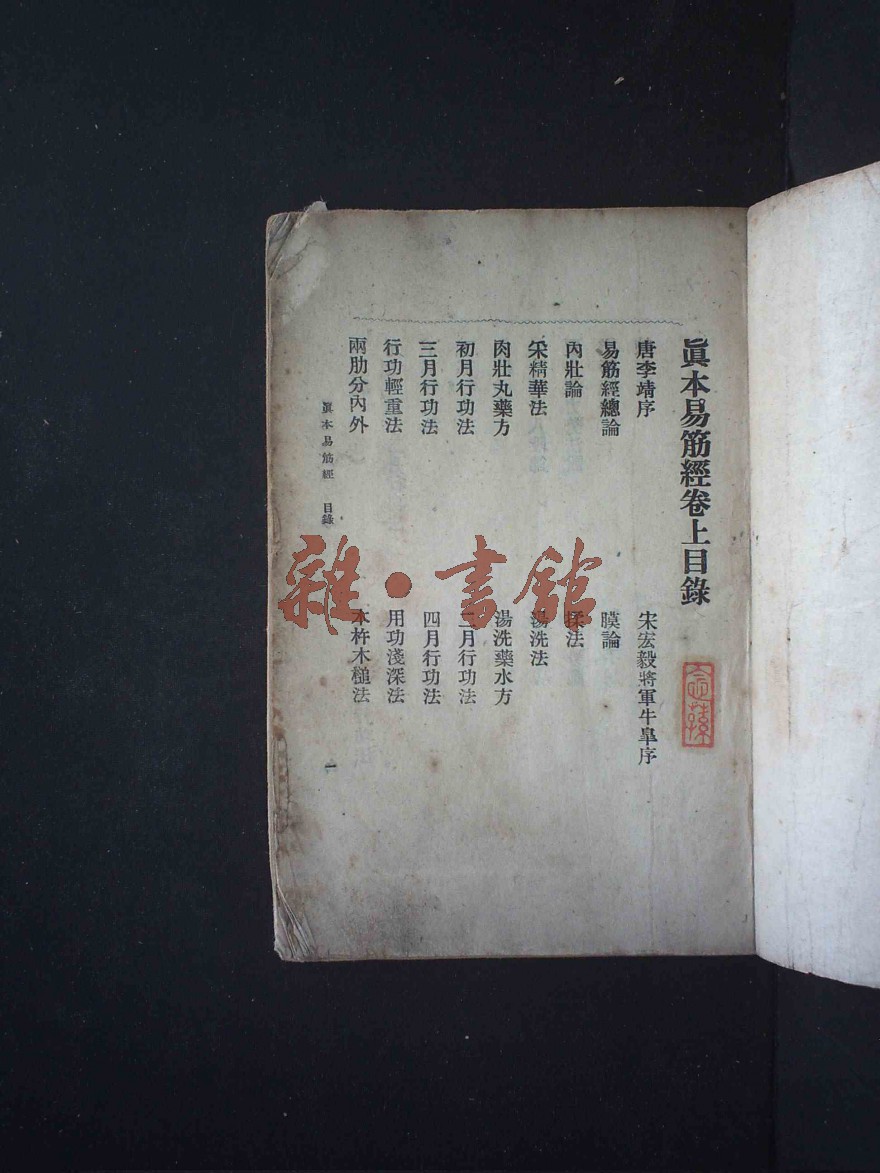 眞本易筋經卷上目錄
唐李靖序
宋宏毅將軍牛臯序
易筋經總論
膜論
內壯論
揉法
采精華法
湯洗法
肉壯丸藥方
湯洗藥水方
初月行功法
二月行功法
三月行功法
四月行功法
行功輕重法
用功淺深法
兩肋分內外
木杵木槌法
眞本易筋經 目錄
一
雜·書館